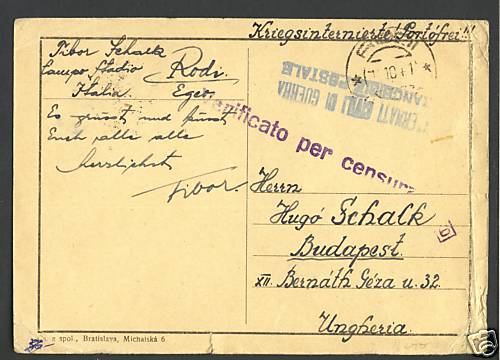 Kriegsinternierte! Portófrei!!
Tibor Schalk
Campo Stadio Rodi.
Italia. Egeo.
Es grüsst und küsst
Euch alle alle
herzlichst
Tibor.
INTERNATI CIVILI DI GUERRA
POSTALE
Verificato per censura
Herrn
Hugó Schalk
Budapest.
XII. Bernáth Géza u. 32.
Ungheria.
a spol., Bratislava, Michalská 6